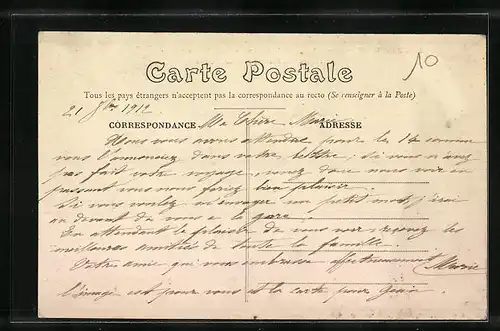 10
Carte Postale
Tous les pays étrangers n'acceptent pas la correspondance au recto (Se renseigner à la Poste)
21 1912
CORRESPONDANCE ADRESSE
Ma Chère Marie
Nous vous avons attendue pour le 14 comme
vous l'annonciez dans votre lettre, si vous n'avez
pas fait votre voyage, venez donc nous voir en
passant vous nous feriez bien plaisir.
Si vous voulez m'envoyer un petit mot j'irai
au devant de vous a la gare.
En attendant le plaisir de vous voir recevez les
meilleures amitiés de toute la famille.
Votre amie qui vous embrasse affectueusement
Marie
l'image est pour vous et la carte pour